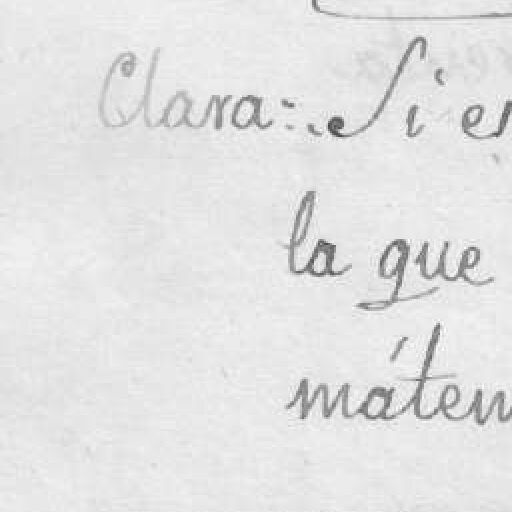 Clara: Si er
la que
mátem